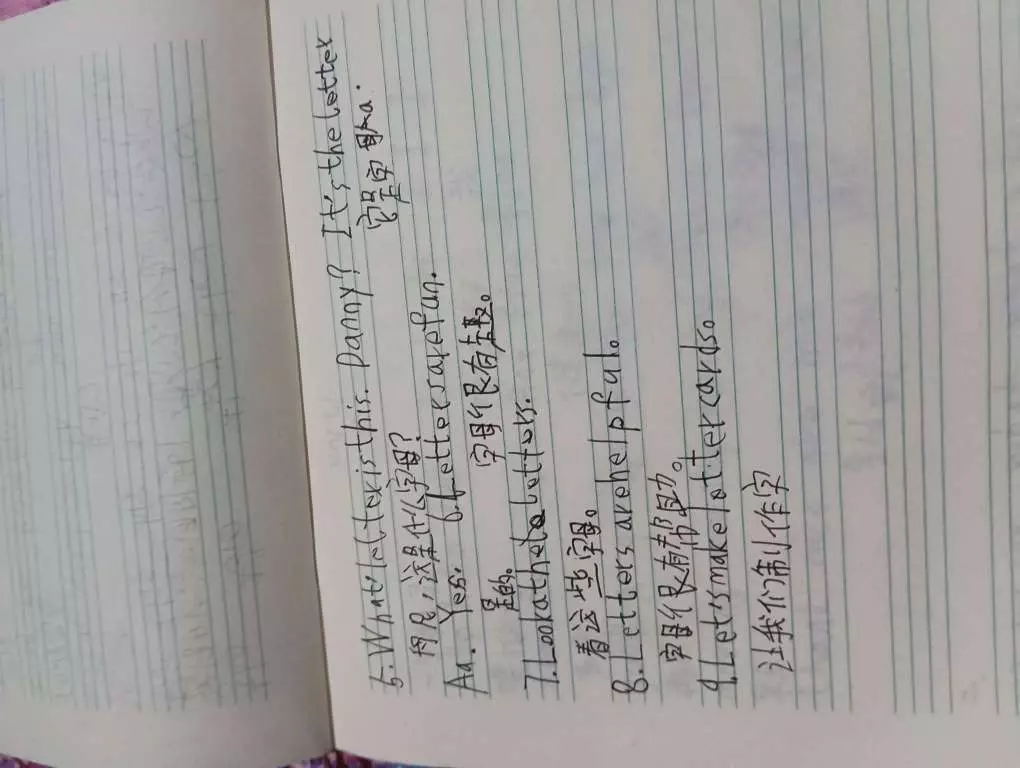 5.What letter is this. Danny? It's the letter
丹尼,这是什么字母? 它是字母Aa.
Aa. Yes. 6.Letters are fun.
是的。 字母很有趣。
7.Look at the letters.
看这些字母。
8.Letters are helpful.
字母很有帮助。
9.Let's make letter cards。
让我们制作字